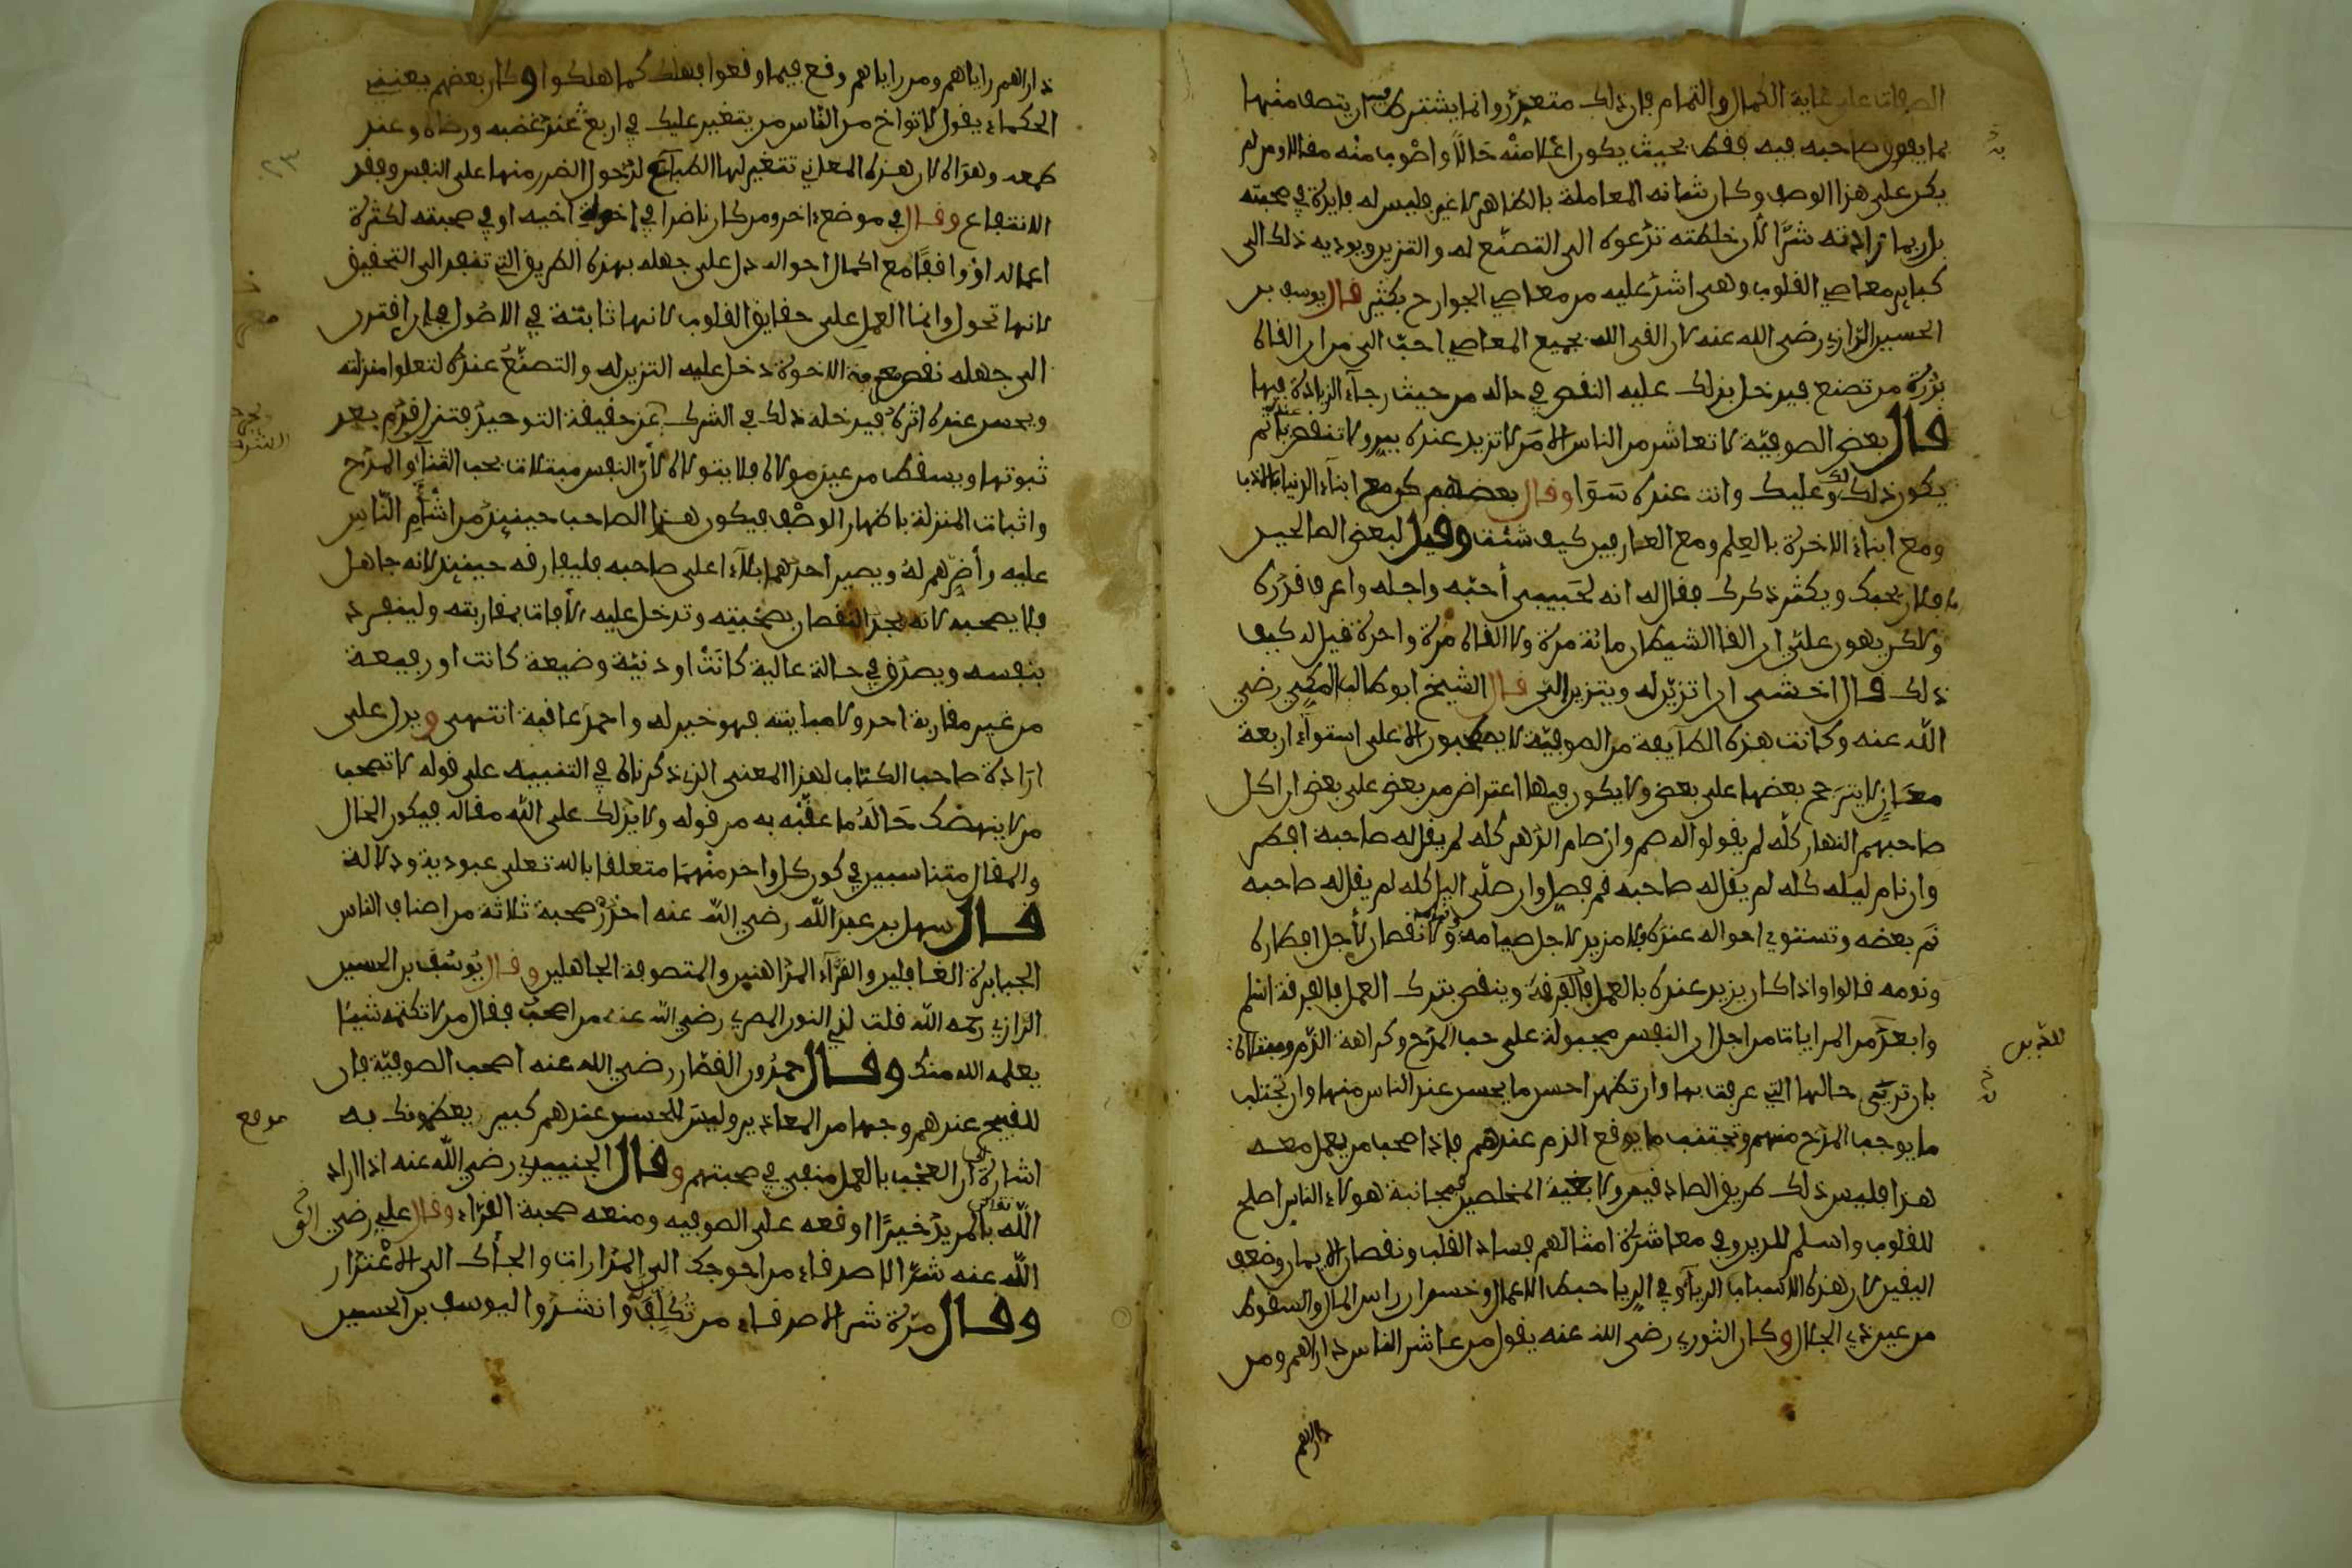 الصفات على غاية الكمال والتمام فان ذلك متعذر وانما يشترط فيمن ان يتصف منها
بما يفوق صاحبه فيه فقط بحيث يكون اعلا منه حالا واصوب منه مقالا ومن لم
يكن على هذا الوصف وكان شانه المعاملة بالظاهر لا غير فليس له فايدة في صحبته
بل ربما زادته شرا لان خلطته تدعوه الى التصنع له والتزين ويوديه ذلك الى
كباير معاصي القلوب وهى اشد عليه من معاصي الجوارح بكثير قال يوسف بن
الحسين الرازي رضى الله عنه لان القى الله بجميع المعاصي احب الى من ان القاه
بذرة من تصنع فيدخل بذلك عليه النقص في حاله من حيث رجاء الزيادة فيها
قال بعض الصوفية لا تعاشر من الناس الا من لا تزيد عنده ببر ولا تنقص عنده باثم
يكون ذلك لك وعليك وانت عنده سوا وقال بعضهم كن مع ابناء الدنيا بالادب
ومع ابناء الاخرة بالعلم ومع العارفين كيف شئت وقيل لبعض الصالحين
ان فلان يحبك ويكثر ذكرك فقال له انه لحبيبي أحبه واجله واعرف قدره
ولاكن يهون علي ان القا الشيطان مائة مرة ولا القاه مرة واحدة قيل له كيف
ذلك قال اخشى ان اتزين له ويتزين الي قال الشيخ ابو طالب المكي رضي
الله عنه وكانت هذه الطايفة من الصوفية لا يصطحبون الا على استواء اربعة
معان لا يترجح بعضها على بعض ولا يكون فيها اعتراض من بعض على بعض ان اكل
صاحبهم النهار كله لم يقولوا له صم وان صام الدهر كله لم يقل له صاحبه افطر
وان نام ليله كله لم يقل له صاحبه قم فصل وان صلى اليل كله لم يقل له صاحبه
نم بعضه وتستوي احواله عنده فلا مزيد لاجل صيامه وقيامه ولا نقصان لأجل افطاره
ونومه قالوا واذا كان يزيد عنده بالعمل فالفرقة وينقص بترك العمل فالفرقة اسلم
وابعد من المراياة من اجل ان النفس مجبولة على حب المدح وكراهة الذم ومبتلاة
بان ترى حالها التي عرفت بها وان تظهر احسن ما يحسن عند الناس منها وان تجتلب
ما يوجب المدح منهم وتجتنب ما يوقع الذم عندهم فاذا صحب من يعمل معه
هذا فليس ذلك طريق الصادقين ولا بغية المخلصين فمجانبة هولاء الناس اصلح
للقلوب واسلم للدين وفي معاشرة امثالهم فساد القلب ونقصان الايمان وضعف
اليقين لان هذه الاسباب الرياء وفي الريا حبط الاعمال وخسران راس المال والسقوط
من عين ذي الجلال وكان الثوري رضى الله عنه يقول من عاشر الناس داراهم ومن
داراهم
داراهم راياهم ومن راياهم وقع فيما وقعوا فهلك كما هلكوا وكان بعضهم يعني
الحكماء يقول لا تواخ من الناس من يتغير عليك في اربع عند غضبه ورضاه وعند
طمعه وهواه لان هذه المعاني تتغير لها الطبائع لدخول الضرر منها على النفس وفقد
الانتفاع وقال في موضع اخر ومن كان ناضرا في اخوة اخيه او في صحبته لكثرة
اعماله او واقفا مع اكمال احواله دل على جهله بهذه الطريق التي تنفذ الى التحقيق
لانها تحول وانما العمل على حقايق القلوب لانها ثابتة في الاصول فان اقترن
الى جهله نقص معرفة الاخوة دخل عليه التزين له والتصنع عنده لتعلوا منزلته
ويحسن عنده اثره فيدخله ذلك في الشرك عن حقيقة التوحيد فتزل قدم بعد
ثبوتها ويسقط من عين مولاه فلا يتولاه لأن النفس مبتلات بحب الثناء والمدح
واثبات المنزلة باظهار الوصف فيكون هذا الصاحب حينيذ من اشأم الناس
عليه وأضرهم له ويصير احدهما بلاء على صاحبه فليفارقه حينيذ لانه جاهل
فلا يصحبه لانه يجد النقصان بصحبته وتدخل عليه الأفات بمقاربته ولينفرد
بنفسه ويصدق في حالة عالية كانت او دنية وضيعة كانت او رفيعة
من غير مقاربة احد ولا مباينته فهو خير له واحمد عاقبة انتهى ويدل على
ارادة صاحب الكتاب لهذا المعنى الذي ذكرناه في التنبيه على قوله لا تصحب
من لا ينهضك حاله ما عقبه به من قوله ولا يدلك على الله مقاله فيكون الحال
والمقال متناسبين في كون كل واحد منهما متعلقا بالله تعلى عبودية ودلالة
قال سهل بن عبد الله رضي الله عنه احذر صحبة ثلاثة من اصناف الناس
الجبابرة الغافلين والقراء المداهنين والمتصوفة الجاهلين وقال يوسف بن الحسين
الرازي رحمه الله قلت لذي النون المصري رضي الله عنه من اصحب فقال من لا تكتمه شيئا
يعلمه الله منك وقال حمدون القصار رضي الله عنه اصحب الصوفية فان
للقبيح عندهم وجها من المعاذير وليس للحسن عندهم كبير يعظمونك به
اشارة الى ان العجب بالعمل منفي في صحبتهم وقال الجنيد رضي الله عنه اذا اراد
الله تعالى بالمريد خيرا اوقعه على الصوفيه ومنعه صحبة القراء وقال علي رضي
الله عنه شر الاصدقاء من احوجك الى المدارات والجأك الى الاعتذار
وقال مرة شر الاصدقاء من تكلف له وانشدوا ليوسف بن الحسين